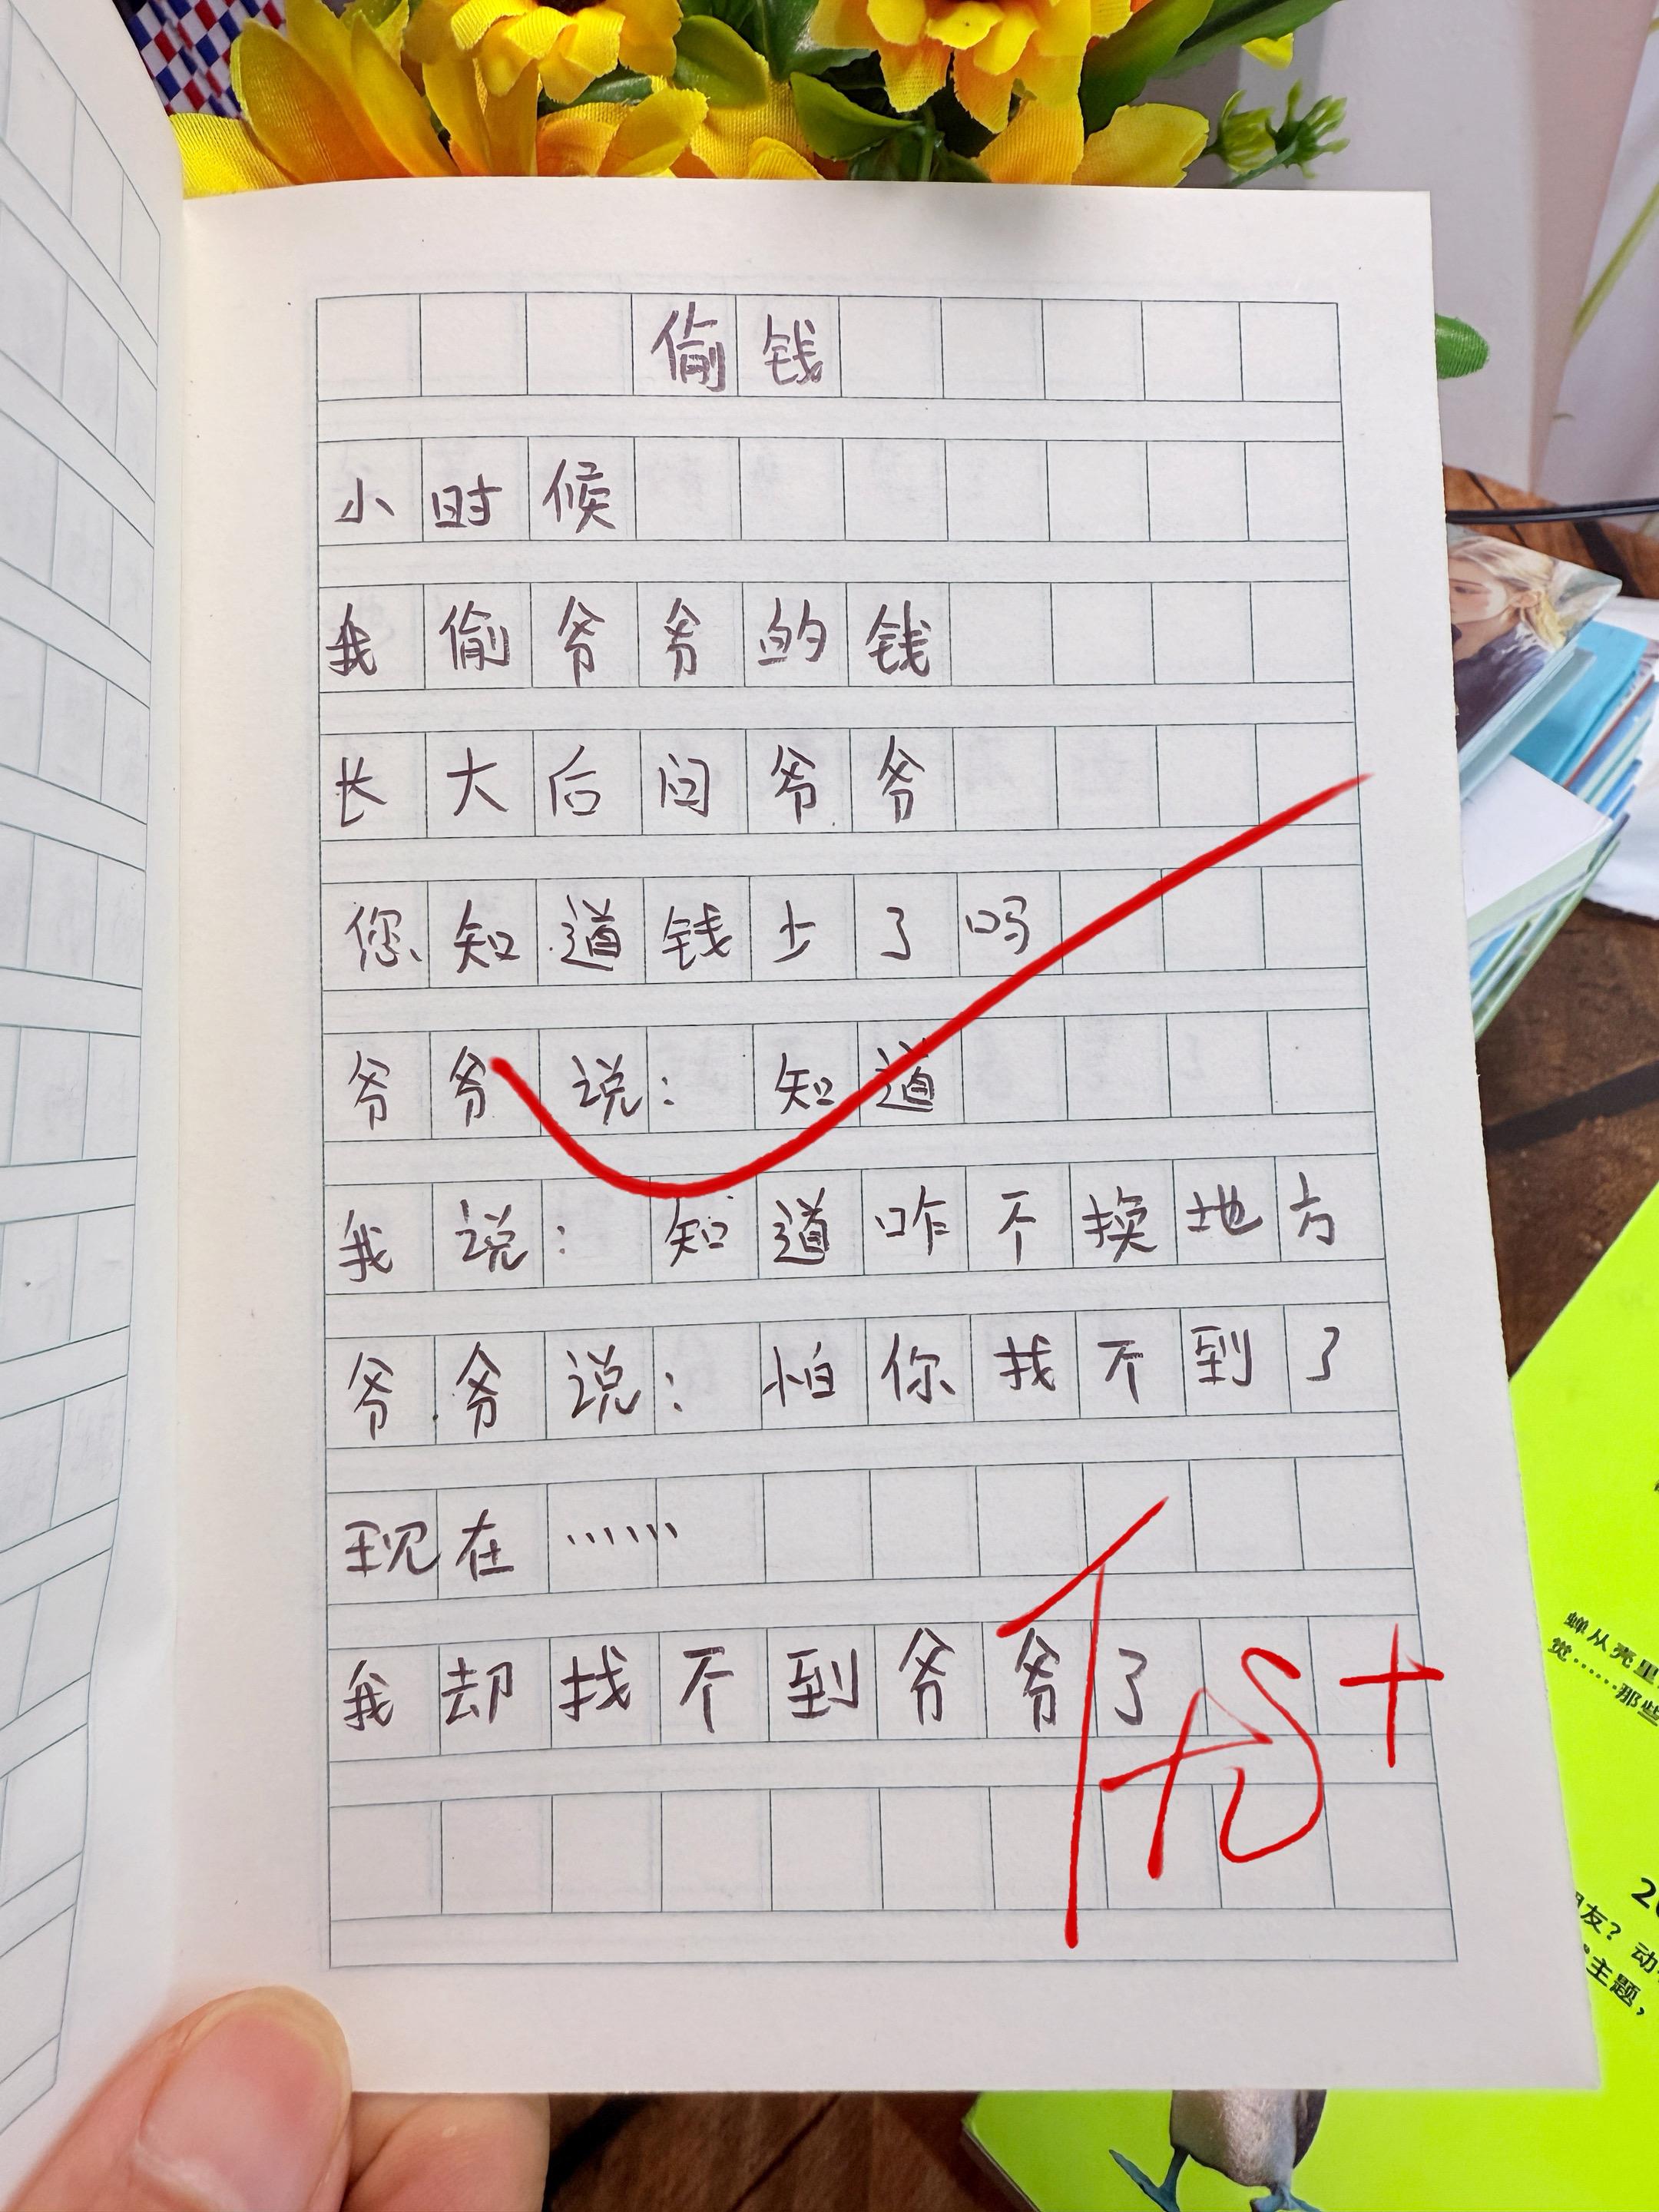 偷钱
小时候
我偷爷爷的钱
长大后问爷爷
您知道钱少了吗
爷爷说：知道
我说：知道咋不换地方
爷爷说：怕你找不到了
现在……
我却找不到爷爷了
优+
蝉从壳里
觉……那些
主题，